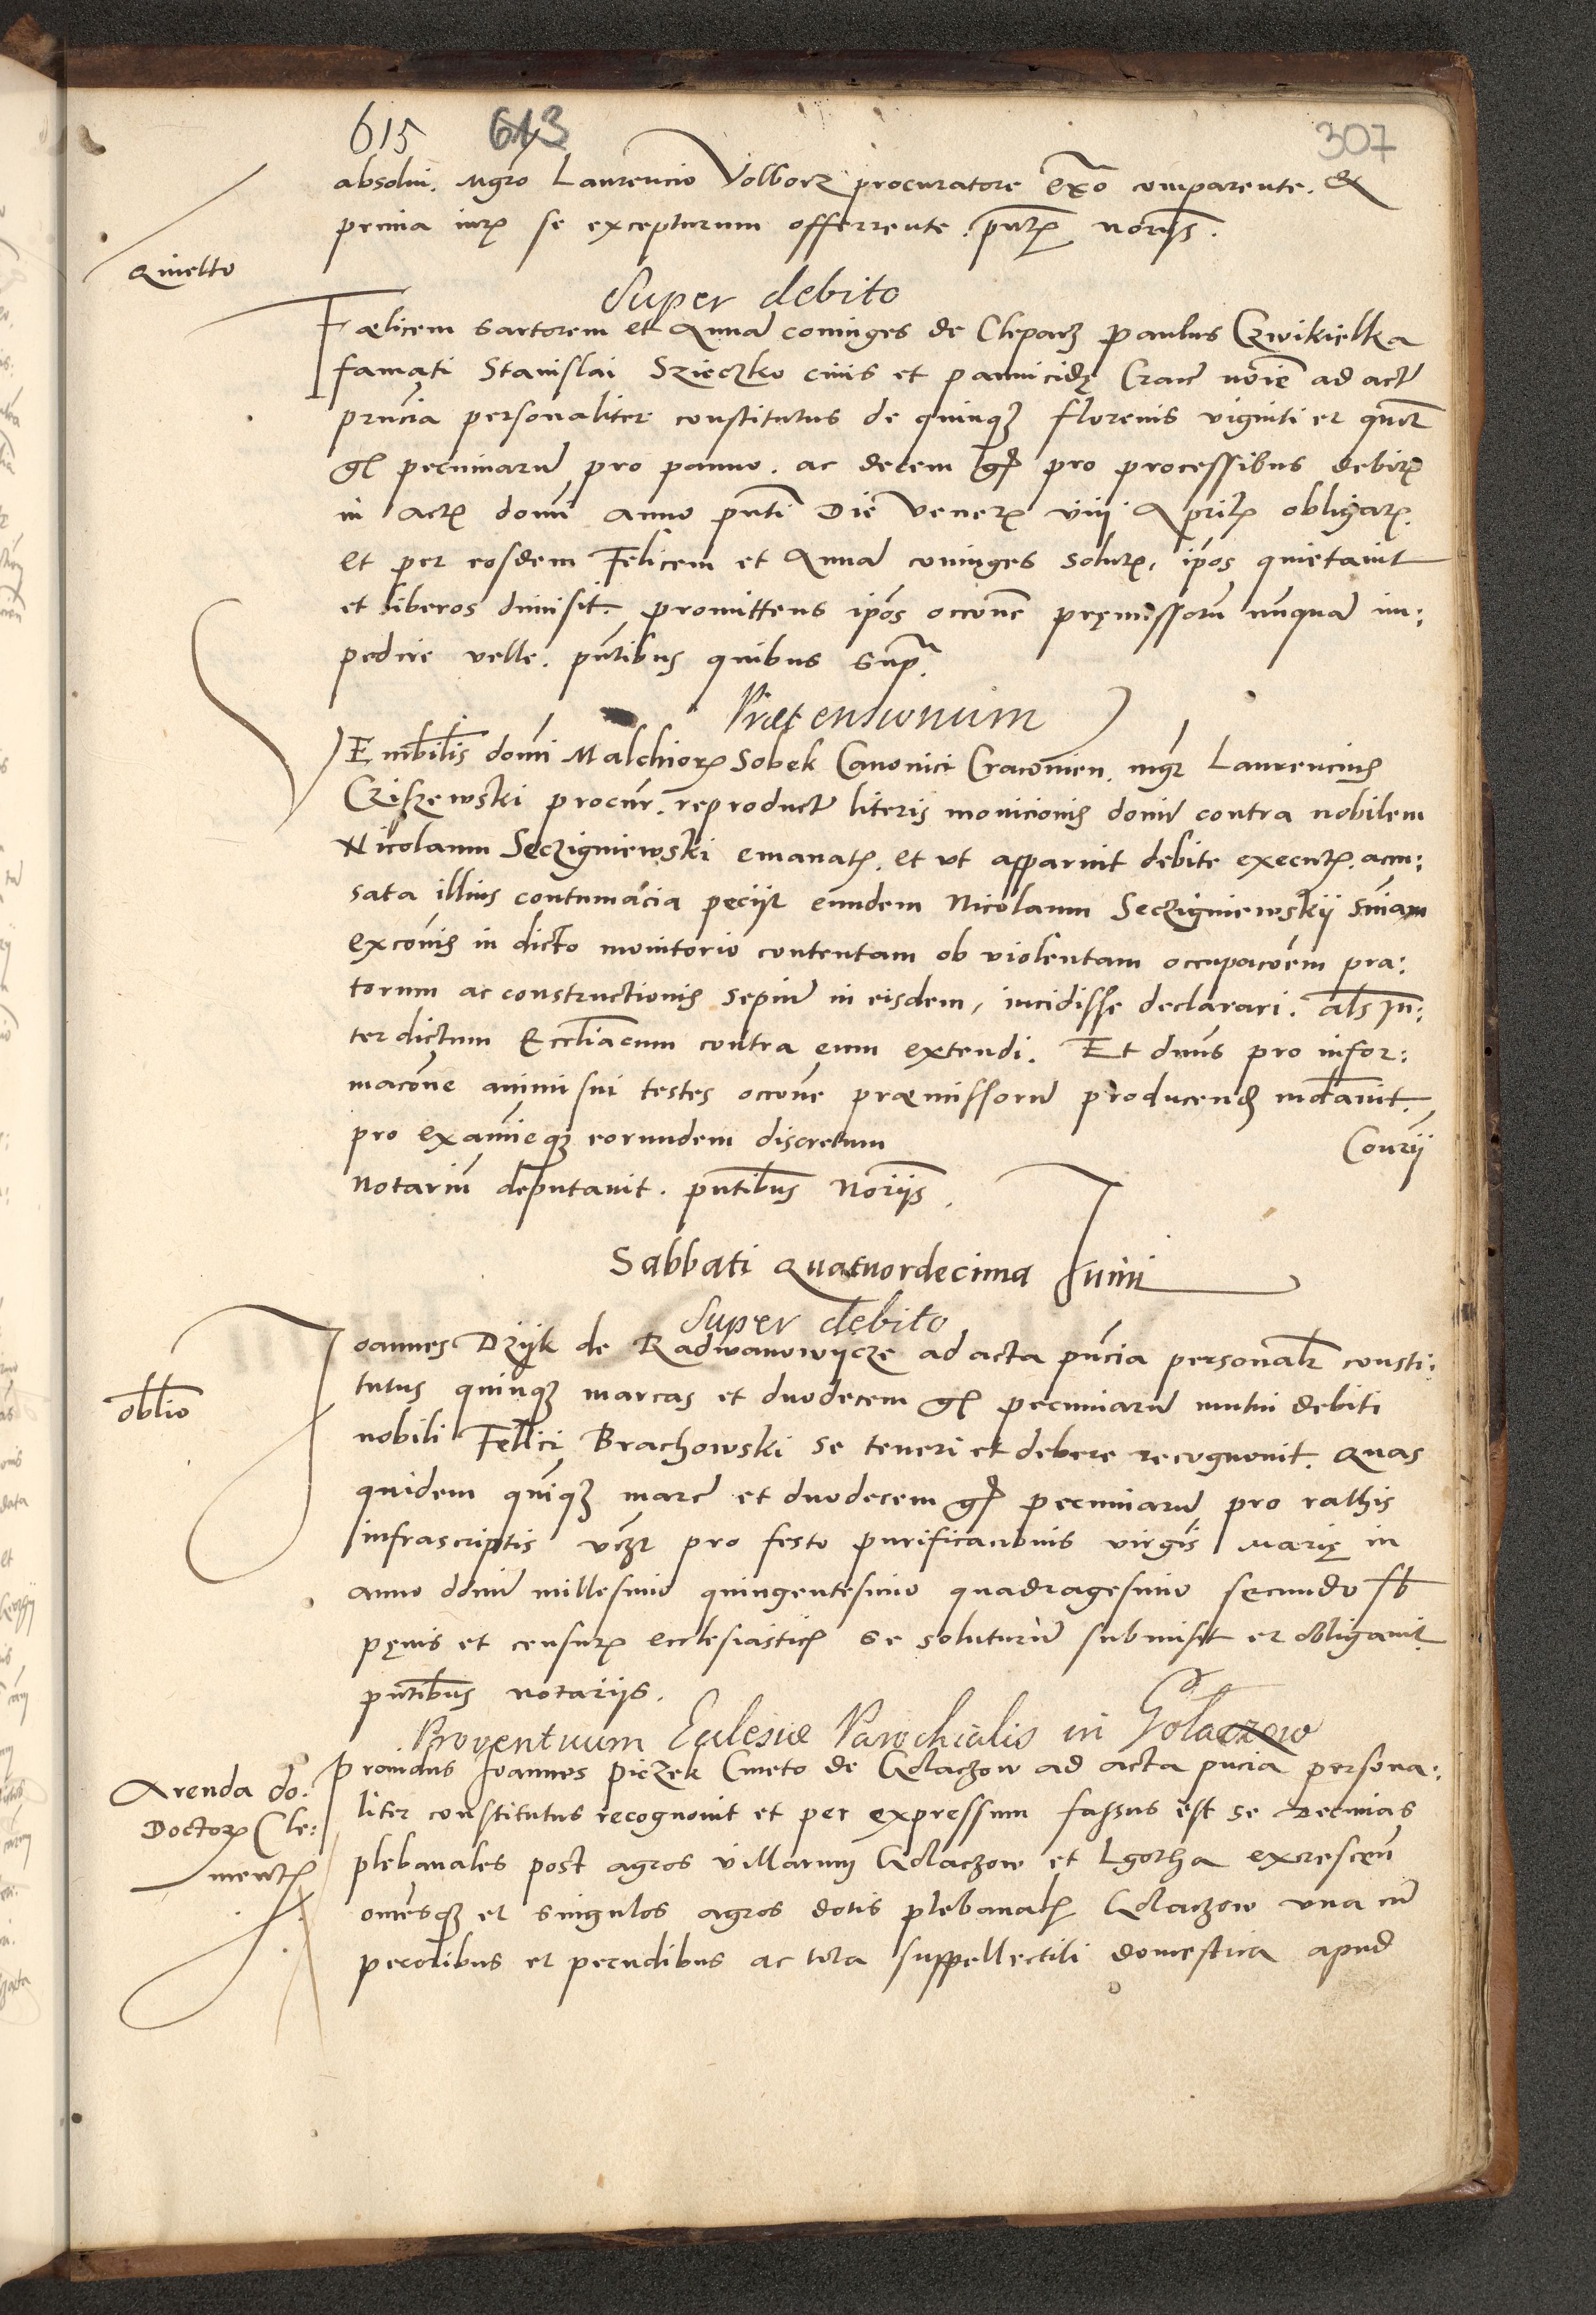 615 613 307
absolui. Mgro Laurencio Volborz procuratore exo comparente. Et
primia iuris se excepturum offerrente. pntibus noriis.
Quietto
Super debito
Fælicem sartorem et Annam coniuges de Cleparz Paulus Czwikielka
famati Stanislai Szieczko ciuis et pannicidę Cracr noie ad acta
pncia personaliter constitutus de quinq3 florenis viginti et quor
gr pecuniarum pro panno. ac decem gr pro processibus debitis
in actis domi anno pnti Die Veneris viij Aprilis obligatis.
et per eosdem Felicem et Annam coniuges solutis, ipos quietauit
et liberos dimisit. promittens ipos occone pręmissorum nunquam im:
pedire velle. pntibus quibus supra.
Prætensionum
Enbilis domi Malchioris Sobek Canonici Cracouien. mgr Laurencius
Cziszewski procur. reproductis literis monicionis domi contra nobilem
Nicolaum Seczigniewski emanatis. et vt apparuit debite executis. accu:
sata illius contumacia peciit eundem Nicolaum Seczigniewskij sniam
exconis in dicto monitorio contentam ob violentam occupacoem pra:
torum ac constructionis sepium in eisdem, incidisse declarari. als In:
terdictum Eccliacum contra eum extendi. Et dnus pro infor:
macone animi sui testes occone præmissorum producendos mdauit.
pro examineq3 eorundem discretum Consrij
notarium deputauit. pntibus Noriis.
Sabbati Quatuordecima Junii
Super debito
Joannes Dzijk de Radwanowijcze ad acta pncia personalr consti:
oblio
tutus quinq3 marcas et duodecem gr pecuniarum mutui debiti
nobili Felici Brachowski se teneri et debere recognouit. Quas
quidem quinq3 marc et duodecem gr pecuniarum pro rathis
infrascriptis vczt pro festo purificacionis virgis Marię in
anno domi millesimo quingentesimo quadragesimo secundo sb
pęnis et censuris ecclesiasticis se soluturum submisit et obligauit
pntibus notariis.
Proventuum Eclesiæ Parochialis in Golaczow
Prouidus Joannes Piczek Cmeto de Golaczow ad acta pncia persona:
Arenda do.
Doctoris Cle:
mentis
liter constitutus recognouit et per expressum fassus est se Decimas
plebanales post agros villarum Golaczow et Lgotha excrescen
omesq3 et singulos agros dotis plebanalis Golaczow vna cum
pecoribus et pecudibus ac tota suppellectili domestica apud